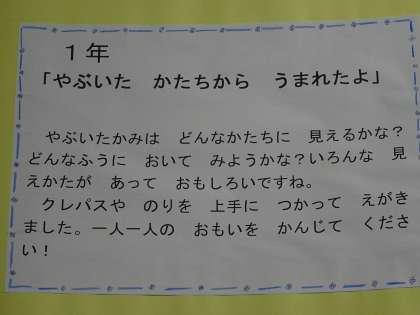 1年
「やぶいた　かたちから　うまれたよ」
　やぶいたかみは　どんなかたちに　見えるかな?
どんなふうに　おいて　みようかな?いろんな　見
えかたが　あって　おもしろいですね。
　クレパスや　のりを　上手に　つかって　えがき
ました。一人一人の　おもいを　かんじて　くださ
い!